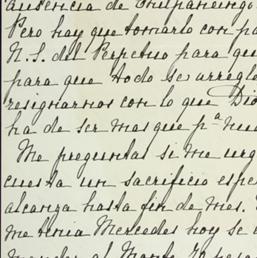 ausencia de Chilpancingo
Pero hay que tomarlo con pa
N. S. del Perpetuo para que
para que todo se arregle
resignarnos con lo que Dios
ha de ser mas que pª nue
Me preguntas si me urg
cuesta un sacrificio espe
alcanza hasta fin de mes.
me tenia Mercedes hoy se
mandar al Monte